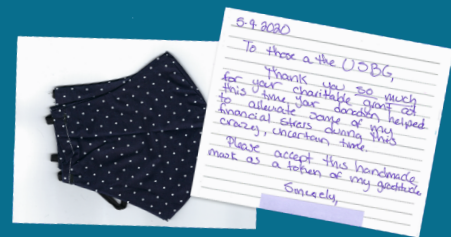 5-9-2020
To those a the USBG,
Thank you so much
for your charitable grant at
this time, your donation helped
to alleviate some of my
financial stress during this
crazy, uncertain time.
Please accept this handmade
mask as a token of my gratitude
Sincerely,